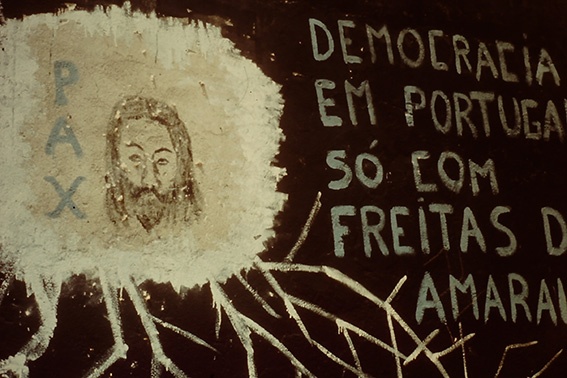 PAX
DEMOCRACIA
EM PORTUGA
SÓ COM
FREITAS D
AMARAL